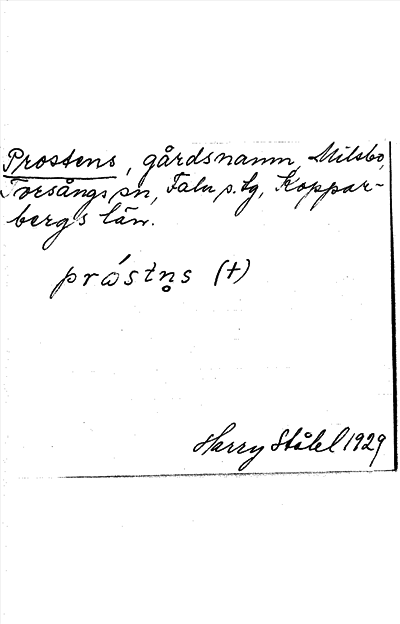 Prostens, gårdsnamn, Milsbo,
Torsångs sn, Falu s. tg, Koppar-
bergs län.
prɷ́stn̥s (+)
Harry Ståhl 1929